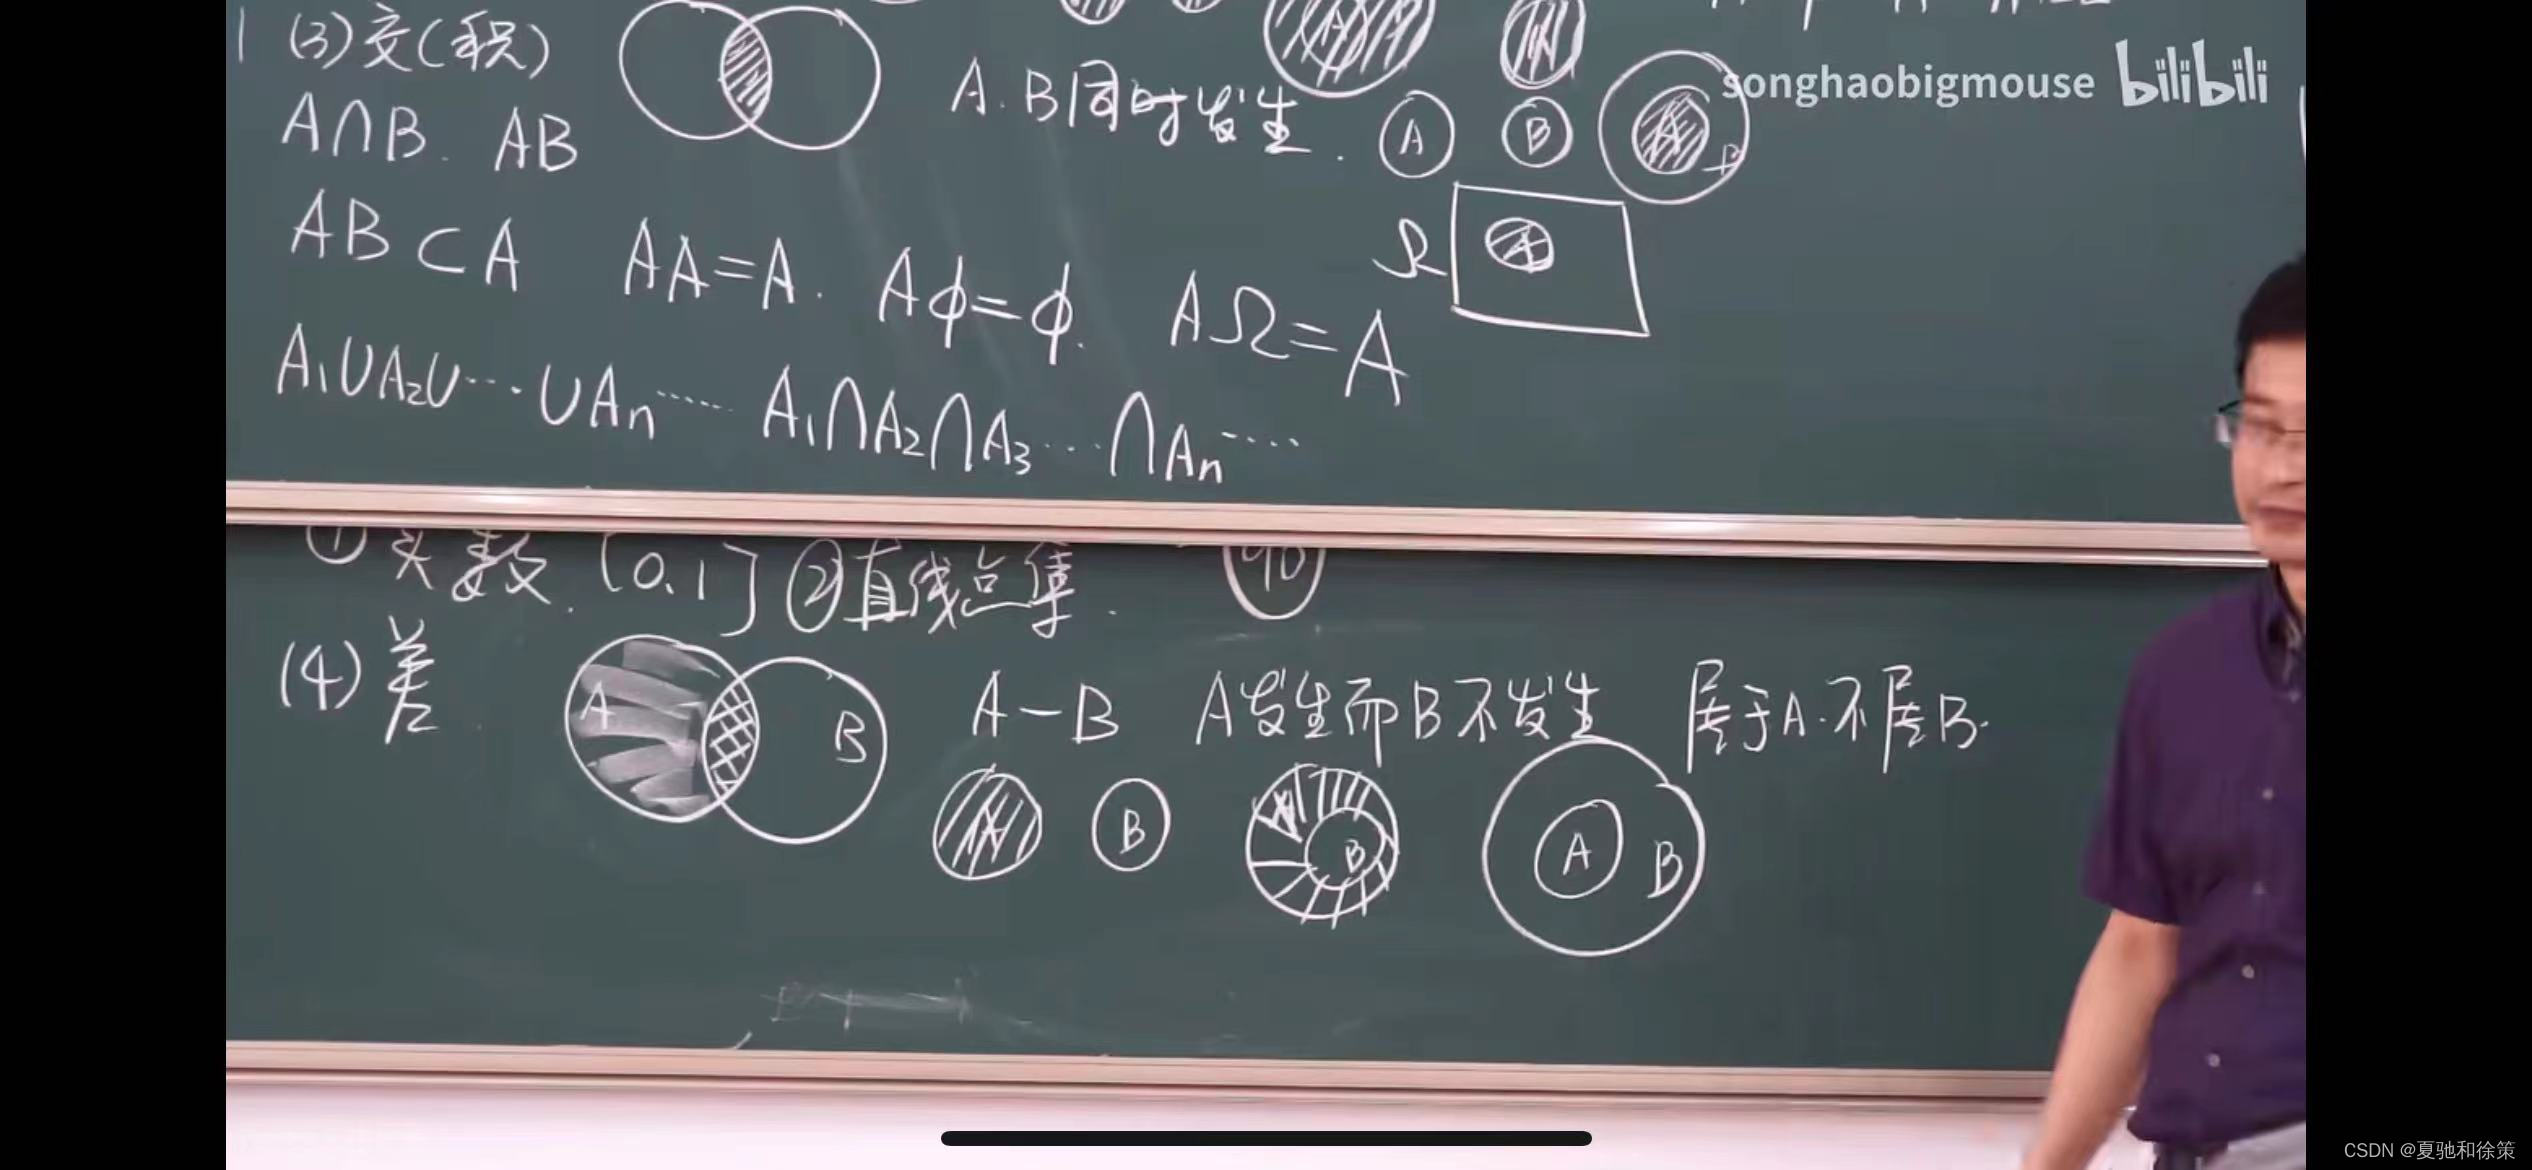 (3)交(积)
A.B同时发生.
songhaobigmouse bilibili
A∩B. AB
A B
A
AB⊂A AA=A. Aϕ=ϕ. AΩ=A
Ω A
A₁∪A₂∪···∪An······ A₁∩A₂∩A₃····∩An·····
① 数. [0,1] ②直线点集.
(4)差. A B A-B A发生而B不发生 属于A.不属B.
A B A B A B
CSDN @夏驰和徐策